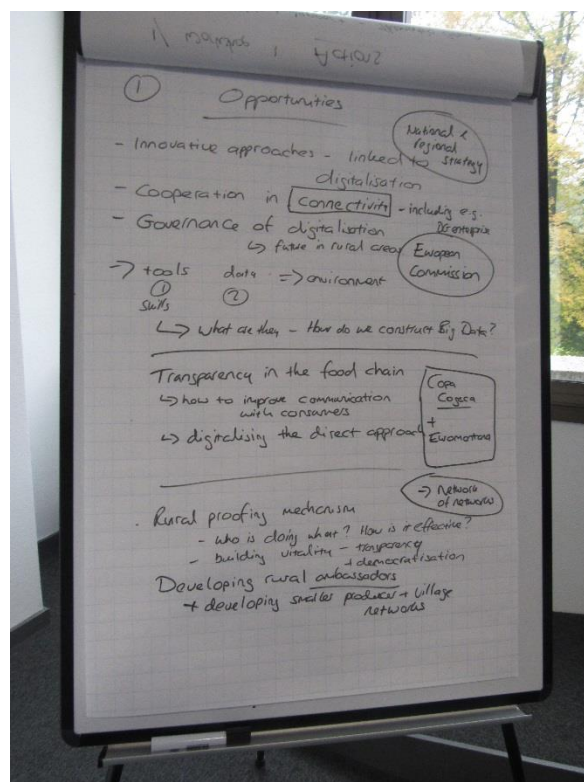 ①
Opportunities
National &
regional
strategy
- Innovative approaches - linked to
digitalisation
- Cooperation in connectivity - including e.g.
DG enterprise
- Governance of digitalisation
↳ future in rural areas
European
Commission
-> tools data => environment
① ②
skills
↳ What are they - How do we construct Big Data?
Transparency in the food chain
↳ how to improve communication
with consumers
↳ digitalising the direct approach
Copa
Cogeca
+
Euromontana
-> Network
of networks
. Rural proofing mechanism
- who is doing what? How is it effective?
- building vitality - transparency
+ democratisation
Developing rural ambassadors
+ developing smaller producer + village
networks